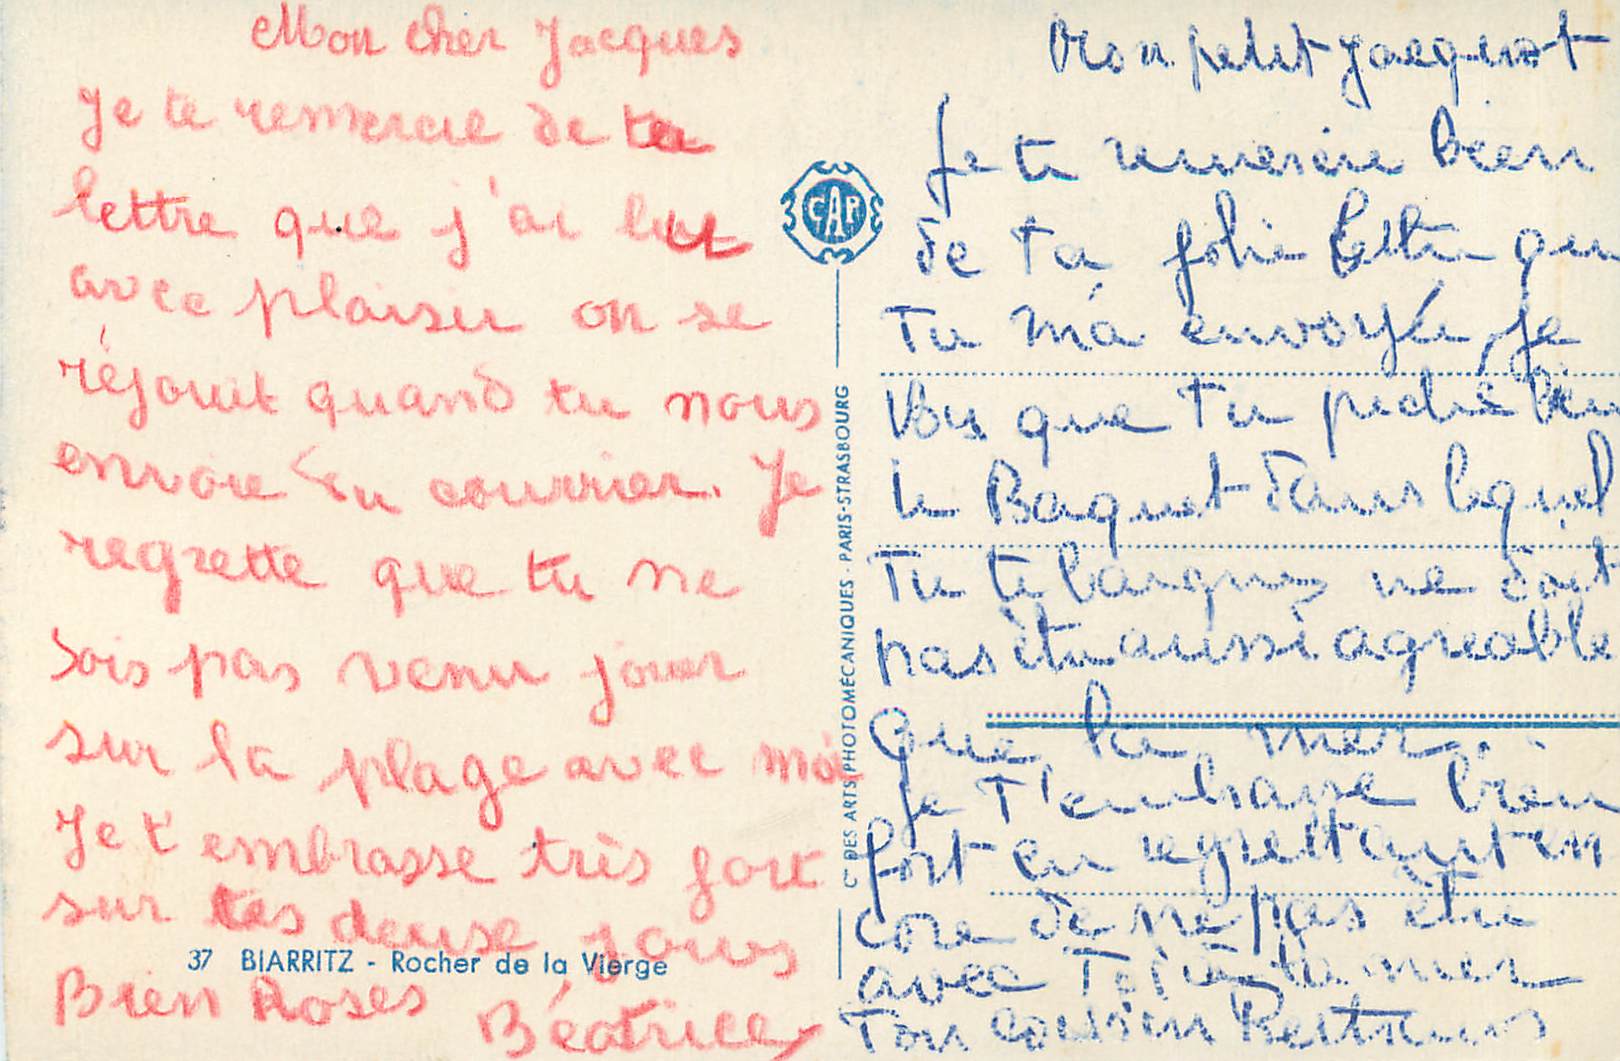 Mon cher Jacques
Je te remercie de ta
lettre que j'ai lut
avec plaisir on se
réjouit quand tu nous
envoie du courrier. Je
regrette que tu ne
sois pas venu jouer
sur la plage avec moi
Je t'embrasse très fort
sur tes deuse joues
Bien Roses Béatrice
37 BIARRITZ - Rocher de la Vierge
CAP
Cie DES ARTS PHOTOMÉCANIQUES - PARIS-STRASBOURG
Mon petit Jacquot
Je te remercie bien
de ta jolie lettre que
tu m'a envoyée, je
Vois que tu
le Baquet dans lequel
Tu te ne doit
pas être aussi agreable
que la mer.
je t'embrasse bien
fort en regrettant en
core de ne pas être
avec toi à la mer
Ton cousin Bertrand